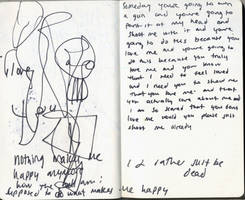 I love
you
nothing makes me
happy anymore
how the hell am I
supposed to do what makes
me happy
Someday you're going to own
a gun and you're going to
point it at my head and
shoot me with it and you're
going to do this because you
love me and you're going to
do this because you truly
love me and you know
what I need to feel loved
and I need you to show me
that you love me and that
you actually care about me and
I am so scared that you don't
love me would you please just
shoot me already
I'd rather just be
dead